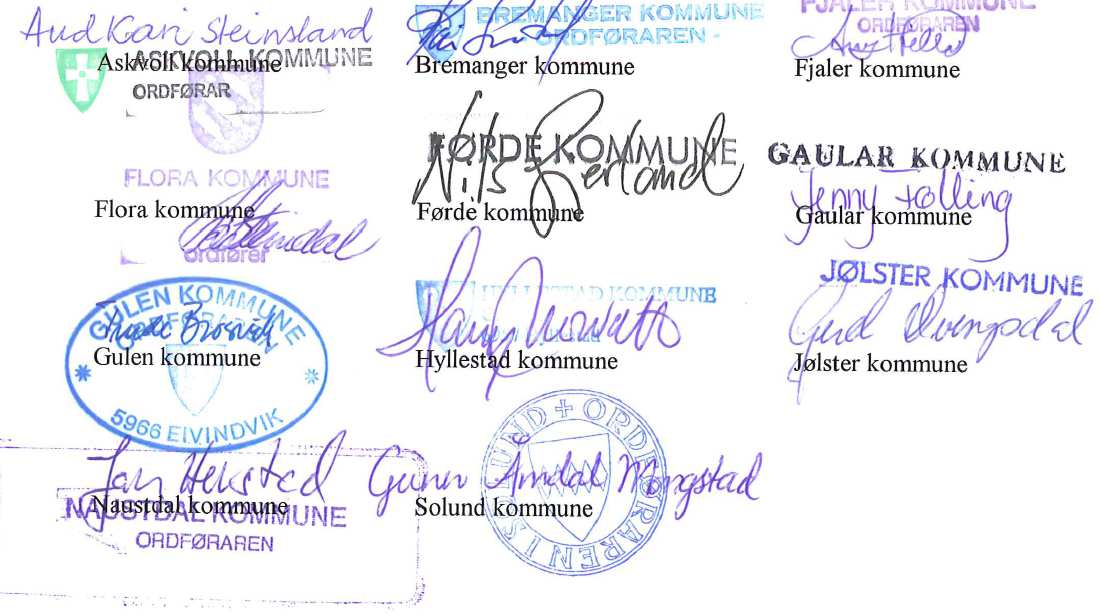 Aud Kari Steinsland
Askvoll kommune
ASKVOLL KOMMUNE
ORDFØRAR
BREMANGER KOMMUNE
- ORDFØRAREN -
Bremanger kommune
FJALER KOMMUNE
ORDFØRAREN
Fjaler kommune
FLORA KOMMUNE
Flora kommune
ordfører
FØRDE KOMMUNE
Nils Gjerland
Førde kommune
GAULAR KOMMUNE
Jenny Følling
Gaular kommune
GULEN KOMMUNE
ORDFØRAREN
Trude Brosvik
Gulen kommune
5966 EIVINDVIK
HYLLESTAD KOMMUNE
Hyllestad kommune
JØLSTER KOMMUNE
Gerd Dvergsdal
Jølster kommune
Naustdal kommune
NAUSTDAL KOMMUNE
ORDFØRAREN
Gunn Åmdal Mongstad
Solund kommune
ORDFØRAREN I SOLUND